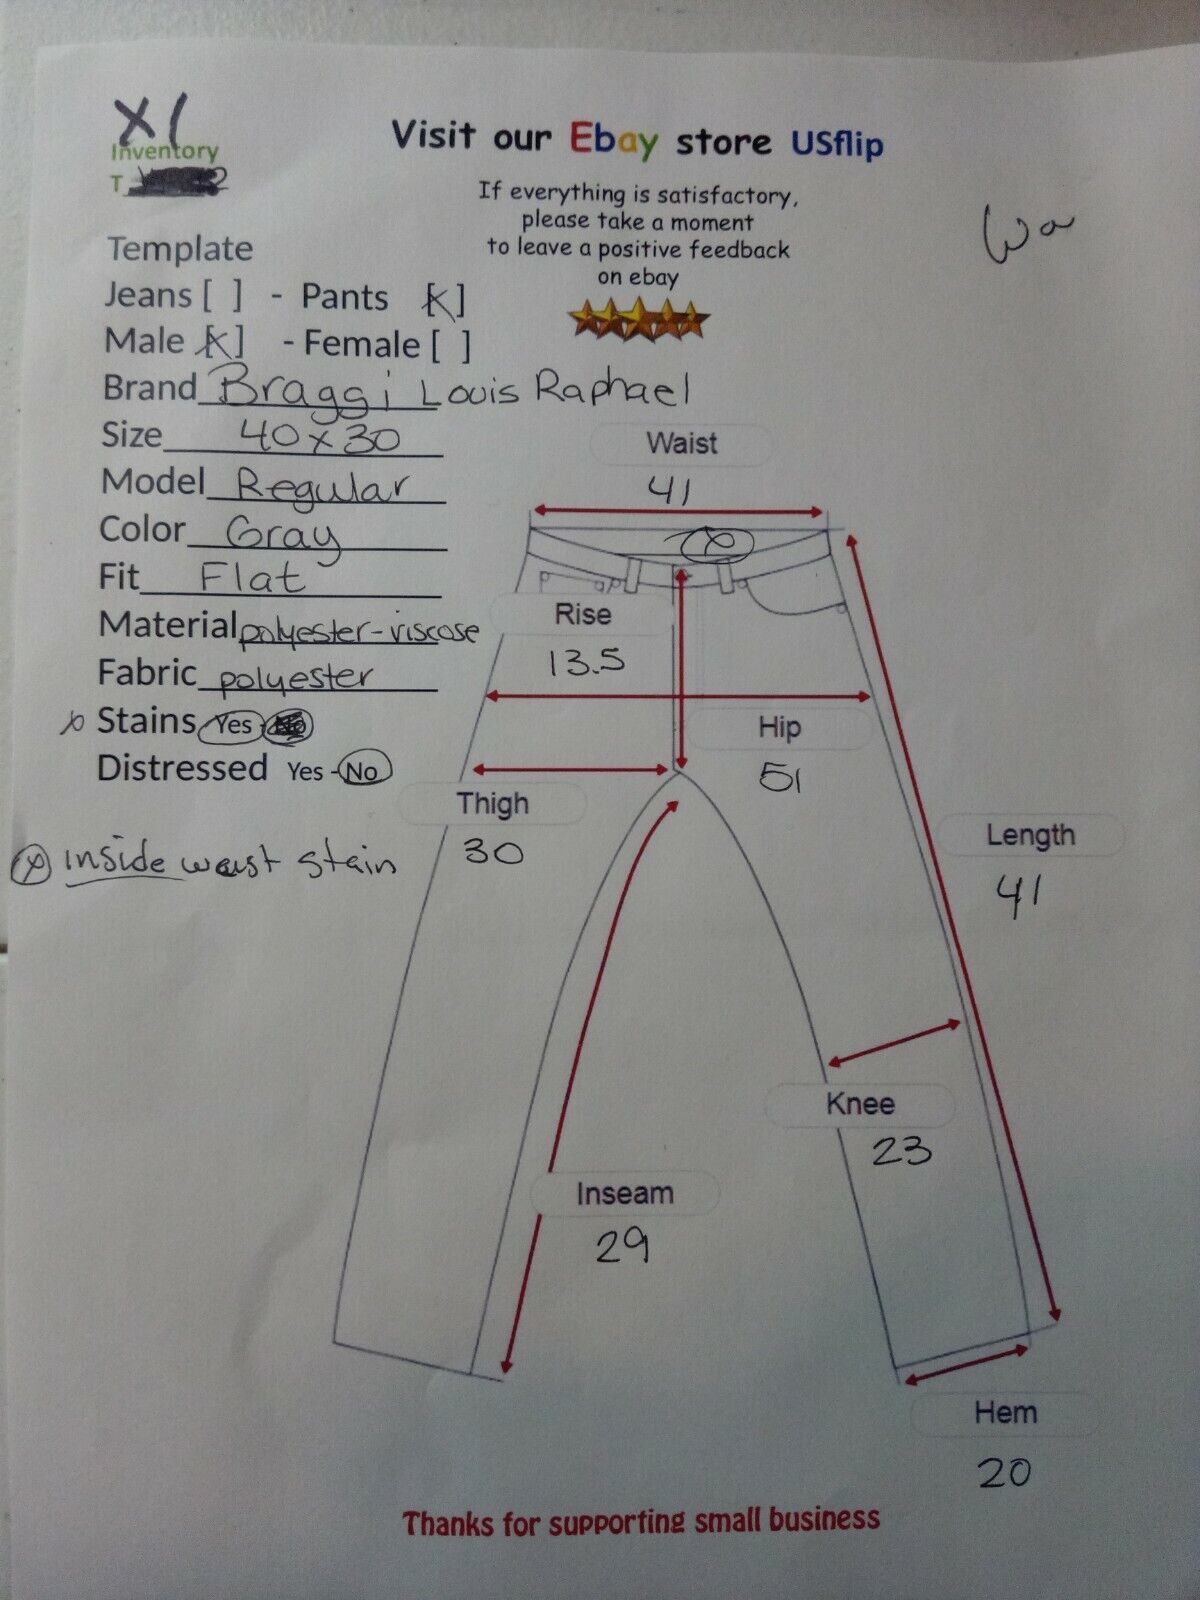 X1
Inventory
T
Visit our Ebay store USflip
If everything is satisfactory,
please take a moment
to leave a positive feedback
on ebay
Wa
Template
Jeans [ ] - Pants [x]
Male [x] - Female [ ]
Brand Braggi Louis Raphael
Size 40x30
Model Regular
Color Gray
Fit Flat
Material polyester-viscose
Fabric polyester
x Stains Yes - No
Distressed Yes - No
x inside waist stain
Waist
41
x
Rise
13.5
Hip
51
Thigh
30
Length
41
Knee
23
Inseam
29
Hem
20
Thanks for supporting small business